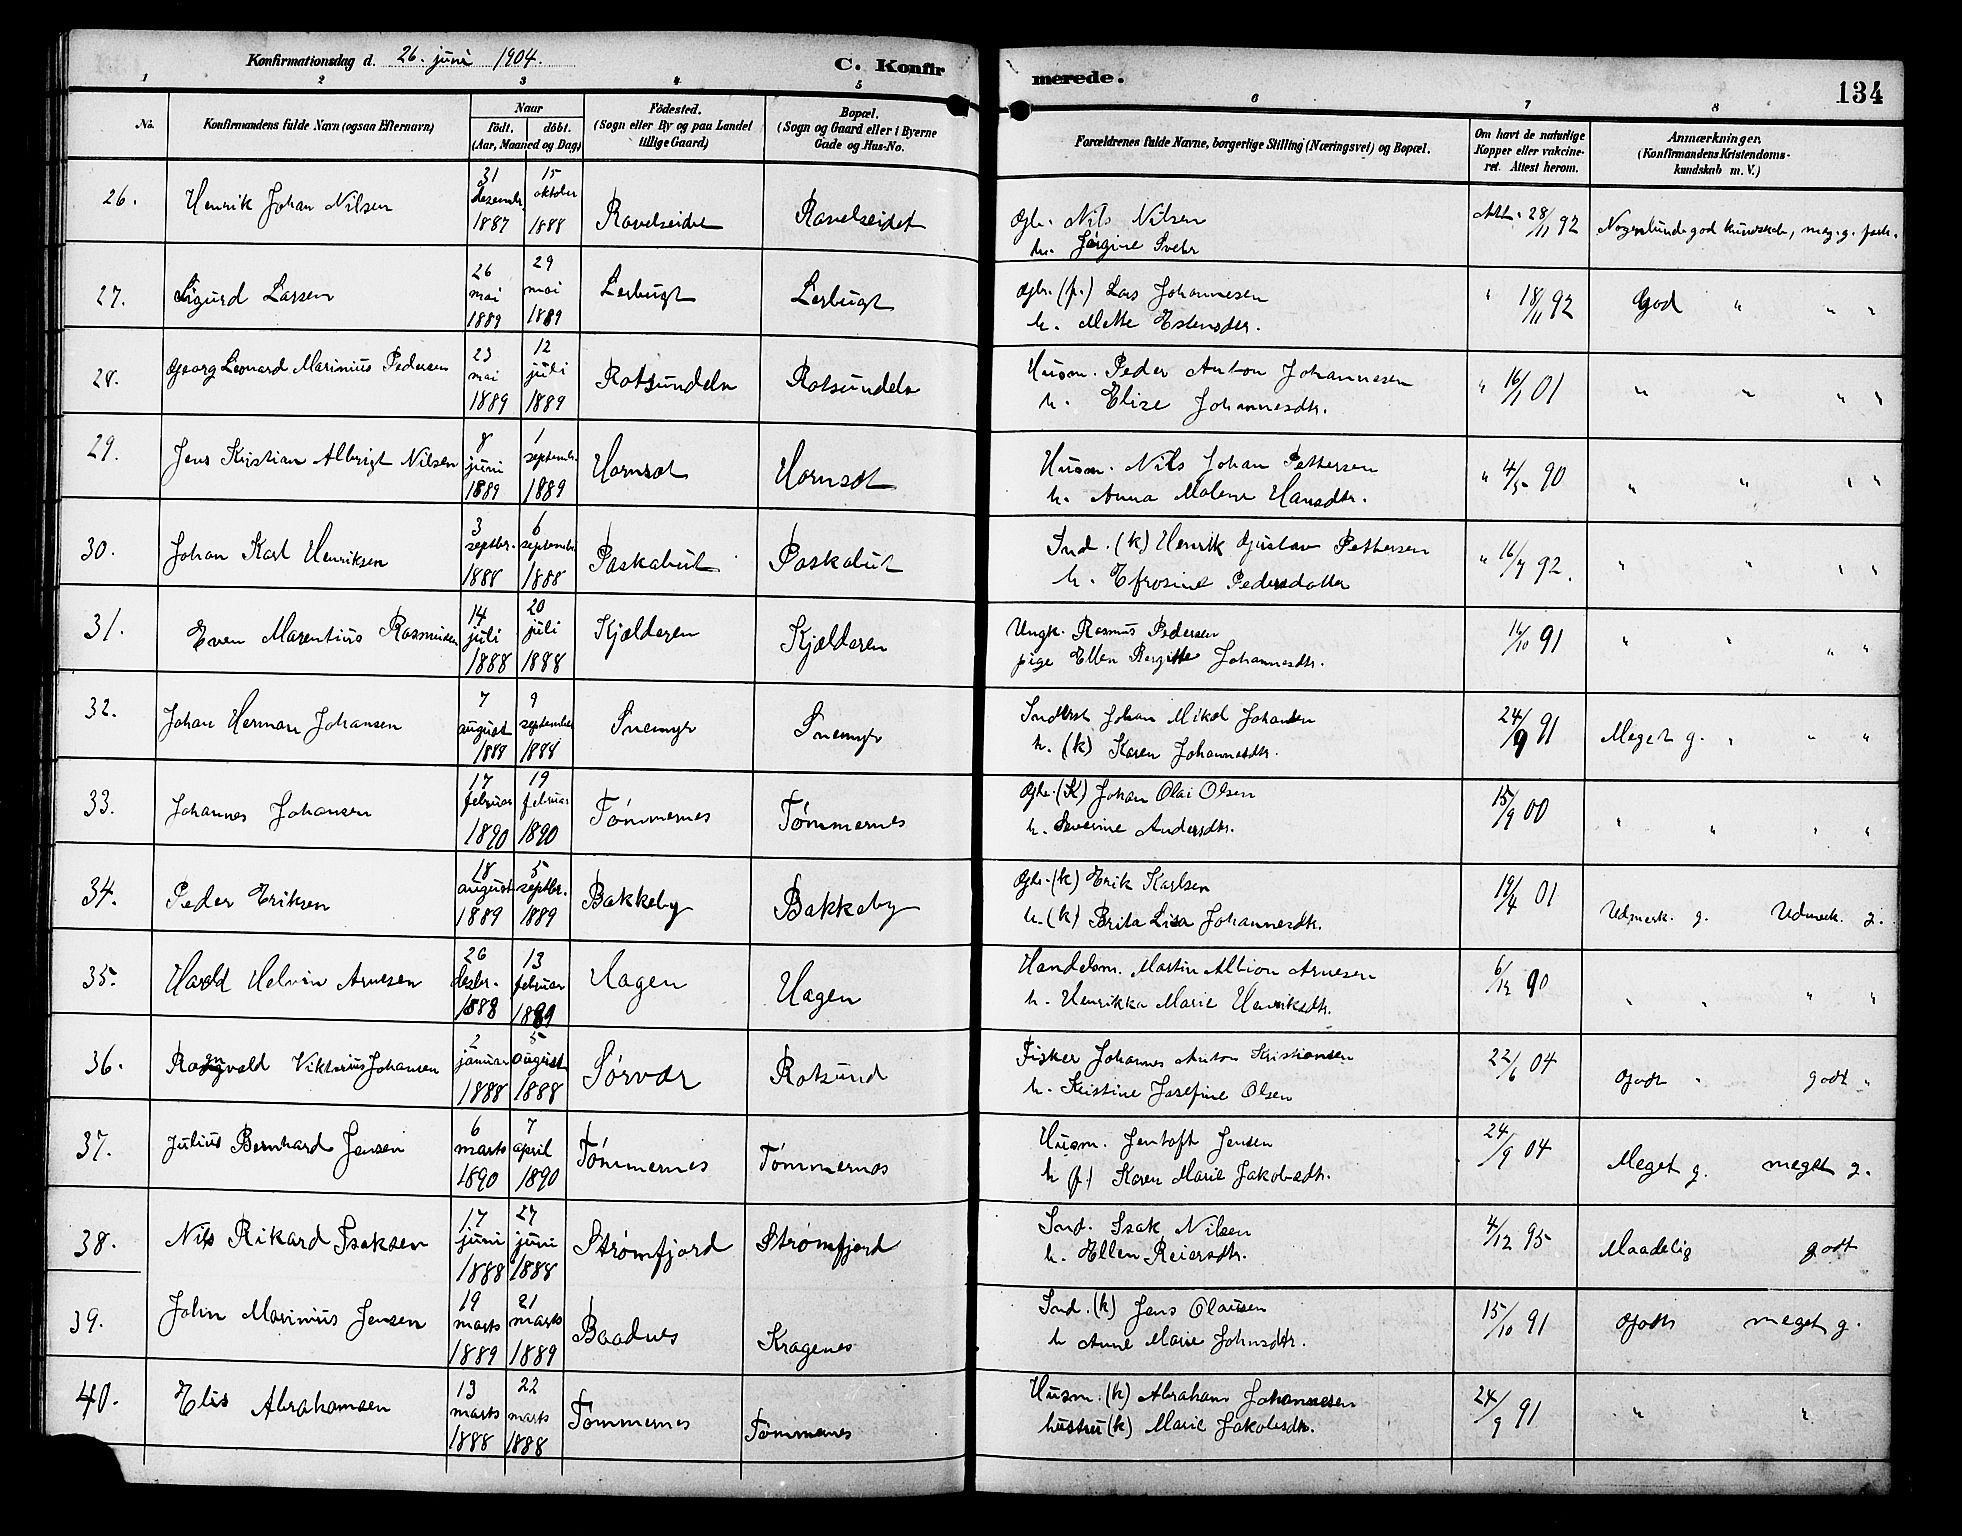 Konfirmationsdag d. 26. juni 1904.
C. Konfirmerede.
134
1 2 3 4 5 6 7 8
No.
Konfirmandens fulde Navn (ogsaa Efternavn)
Naar
født. døbt.
(Aar, Maaned og Dag)
Födested.
(Sogn eller By og paa Landet
tillige Gaard)
Bopæl.
(Sogn og Gaard eller i Byerne
Gade og Hus-No.
Forældrenes fulde Navne, borgerlige Stilling (Næringsvei) og Bopæl.
Om havt de naturlige
Kopper eller vakcine-
ret. Attest herom.
Anmærkninger.
(Konfirmandens Kristendoms-
kundskab m. V.)
26. Henrik Johan Nilsen
31 desembr. 1887 15 oktober 1888
Ravelseidet Ravelseidet
Gbr. Nils Nilsen
Att. 28/11 92
h. Jørgine
27. Sigurd Larsen
26 mai 1889 29 mai 1889
Lerbugt Lerbugt
Gbr. (f.) Lars Johannesen
h. Mette Estensdtr.
" 18/11 92 God " " "
28. Georg Leonard Marinius Pedersen
23 mai 1889 12 juli 1889
Rotsundelv Rotsundelv
Husm. Peder Anton Johannesen
h. Elize Johannesdtr.
" 16/1 01 " " " "
29. Jens Kristian Albrigt Nilsen
8 juni 1889 1 septembr. 1889
Havnsæt Havnsæt
Husm. Nils Johan Pettersen
h. Anna Malene Hansdtr.
" 4/5 90 " " " "
30. Johan Karl Henriksen
3 septbr. 1888 6 septembr. 1888
Paskabut Paskabut
Ind. (k) Henrik Gustav Pettersen
h. Efrosine Pedersdatter
" 16/7 92. " " " "
31. Even Marentius Rasmusen
14 juli 1888 20 juli 1888
Kjælderen Kjælderen
Ungk. Rasmus Pedersen
pige Ellen Bergitte Johannesdtr.
14/10 91 " " " "
32. Johan Herman Johansen
7 august 1888 9 september 1888
Snemyr Snemyr
Inderst Johan Mikal Johansen
h. (k) Karen Johannesdtr.
24/9 91 Meget g. " " "
33. Johannes Johansen
17 februar 1890 19 februar 1890
Tømmernes Tømmernes
Gbr. (K) Johan Olai Olsen
h. Severine Andersdtr.
15/9 00 " " " "
34. Peder Eriksen
18 august 1889 5 septbr. 1889
Bakkeby Bakkeby
Gbr. (k) Erik Karlsen
h. (k) Brita Lisa Johannesdtr.
19/4 01 Udmerk. g. Udmerk. g.
35. Harald Helvin Arnesen
26 desbr. 1888 13 februar 1889
Hagen Hagen
Handelsm. Martin Albion Arnesen
h. Henrikka Marie Henriksdtr.
6/12 90 " " " "
36. Ragnvald Viktorius Johansen
2 januar 1888 5 august 1888
Sørvær Rotsund
Fisker Johannes Anton Kristiansen
h. Kristine Josefine Olsen
22/6 04 Godt " godt "
37. Julius Bernhard Jensen
6 marts 1890 7 april 1890
Tømmernes Tømmernes
Husm. Jentoft Jensen
h (f.) Karen Marie Jakobsdtr.
24/9 04 Meget g. meget g.
38. Nils Rikard Isaksen
17 juni 1888 27 juni 1888
Strømfjord Strømfjord
Ind. Isak Nilsen
h. Ellen Reiersdtr.
4/12 95 Maadelig godt
39. John Marinius Jensen
19 marts 1889 21 marts 1889
Baadnes Kragenes
Ind. (k) Jens Olausen
h Anne Marie Johnsdtr.
15/10 91 Godt meget g.
40. Elis Abrahamsen
13 marts 1888 22 marts 1888
Tømmernes Tømmernes
Husm. (k) Abraham Johannesen
hustru (k) Marie Jakobsdtr.
24/9 91 " "